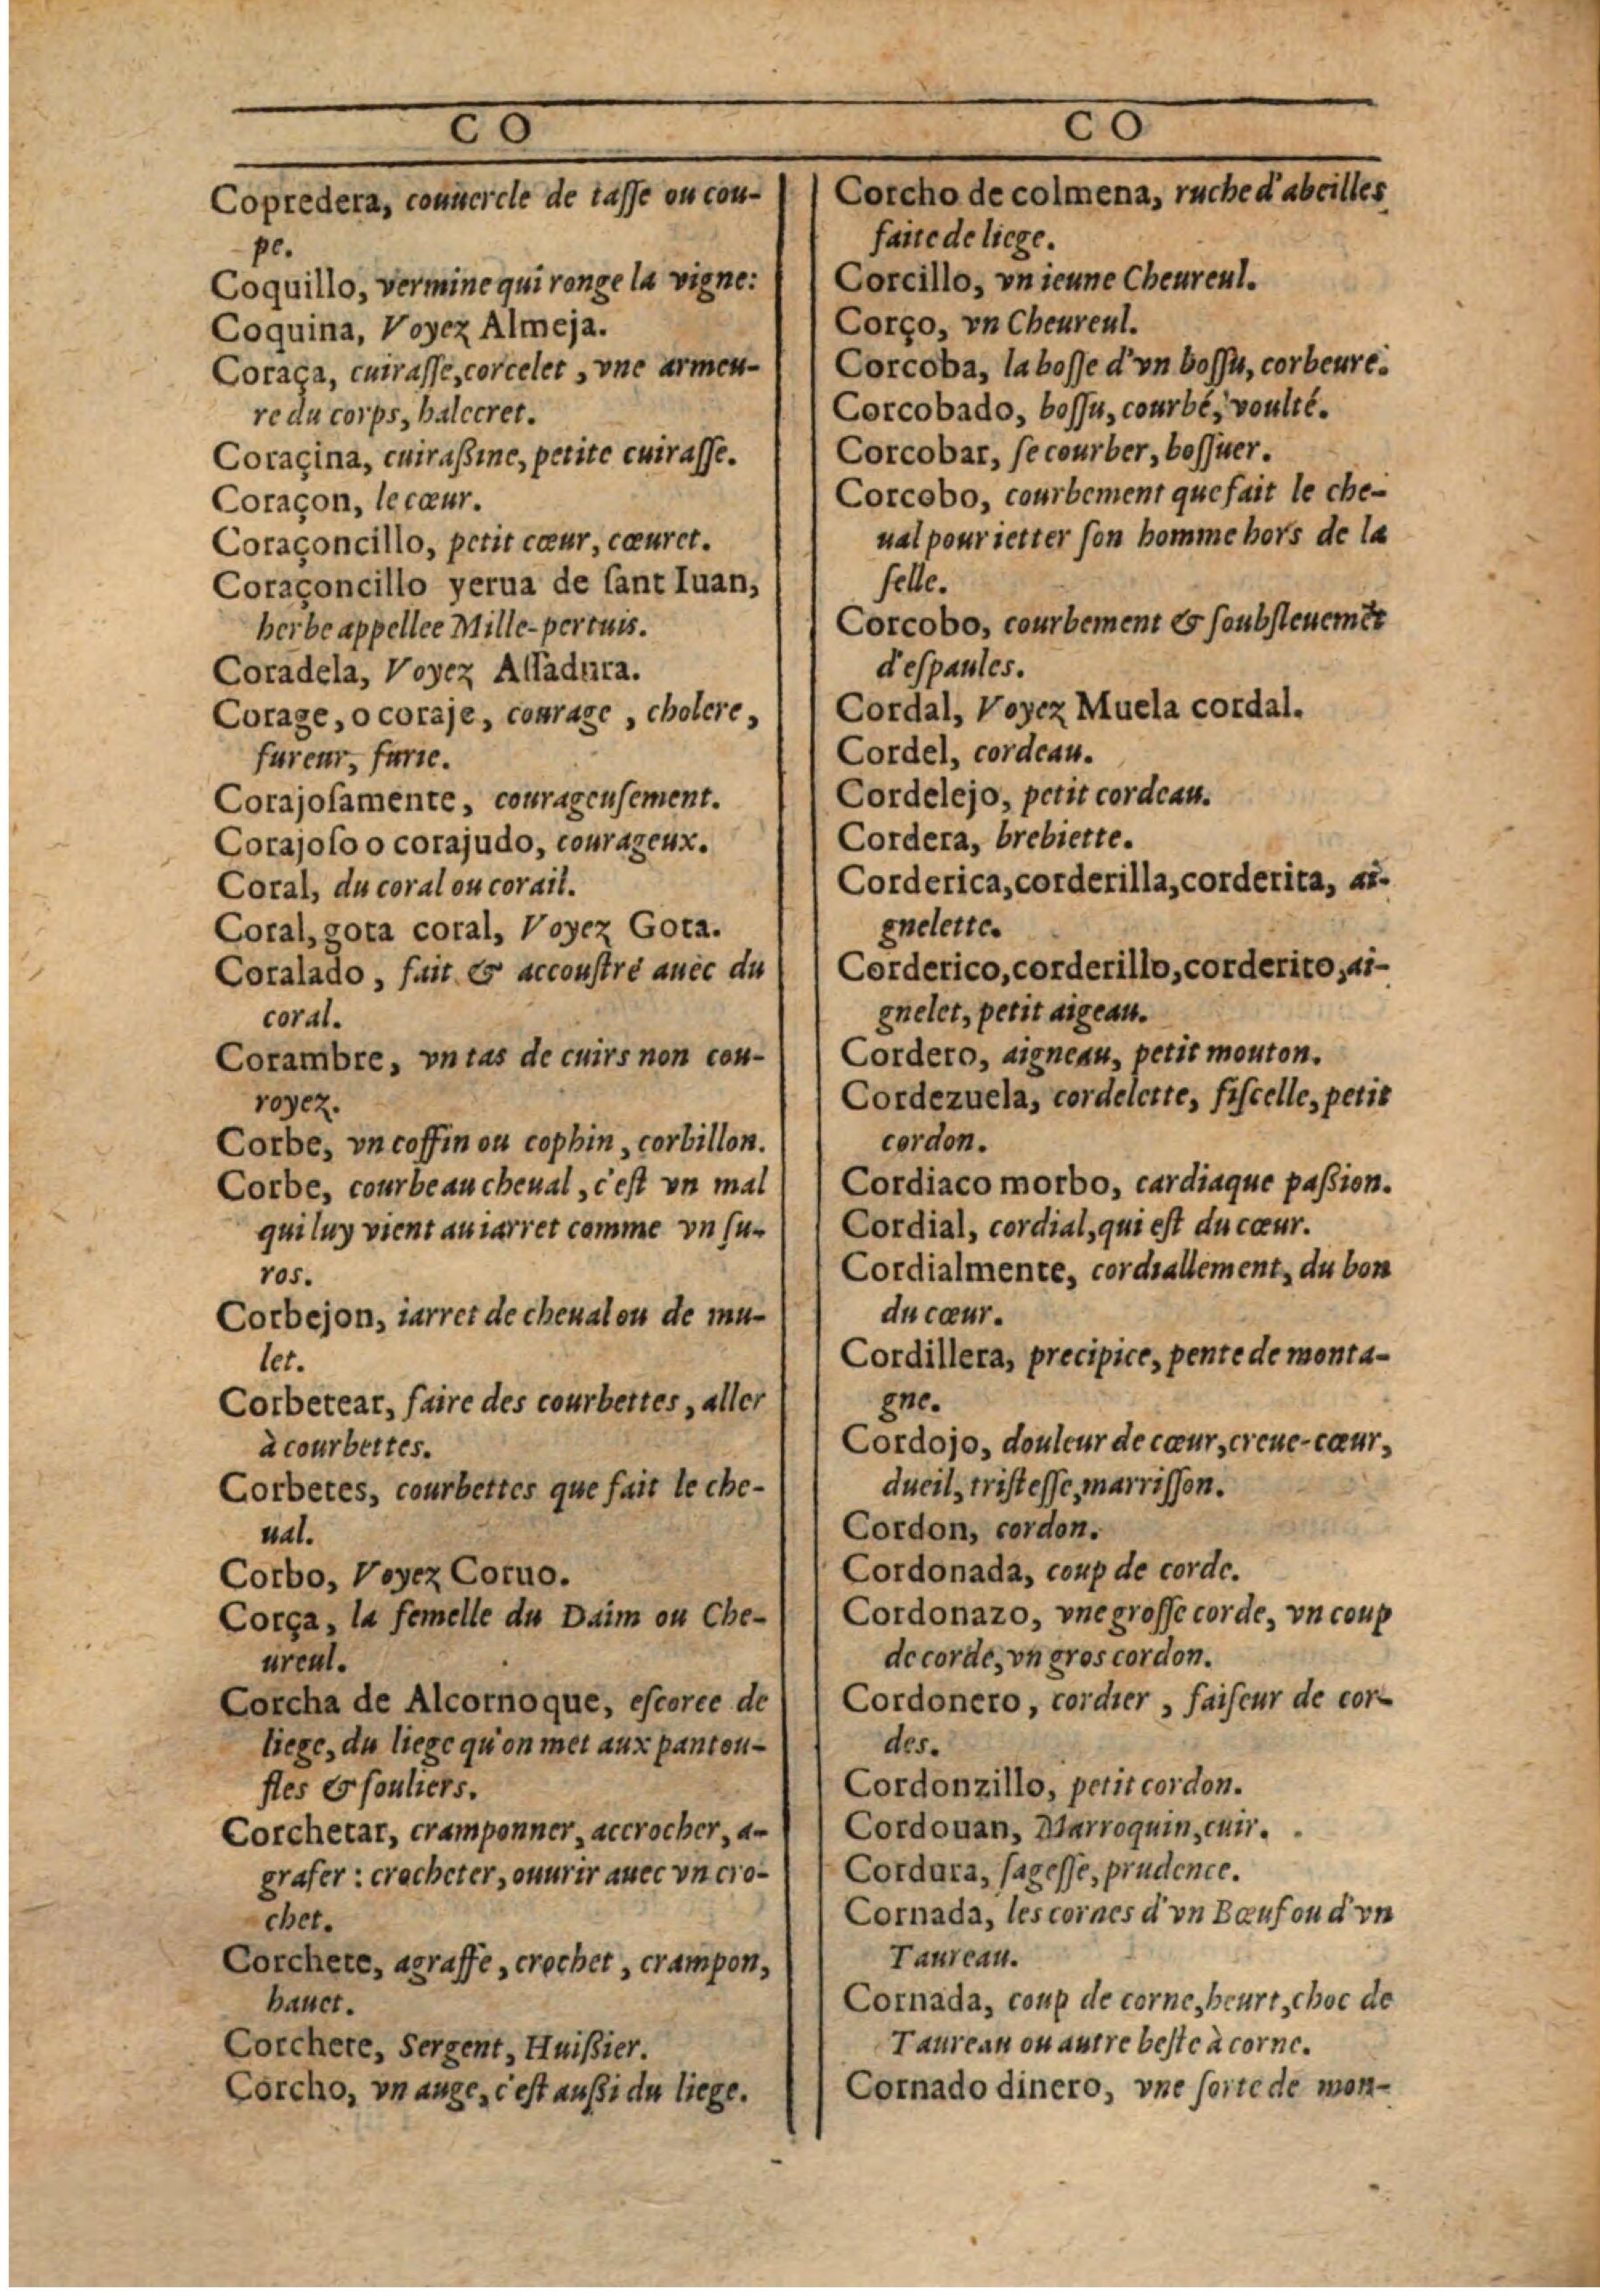 C O
Copredera, couuercle de taſſe ou cou-
pe.
Coquillo, vermine qui ronge la vigne:
Coquina, Voyez Almeja.
Coraça, cuiraſſe, corcelet, vne armeu-
re du corps, halecret.
Coraçina, cuiraßine, petite cuiraſſe.
Coraçon, le cœur.
Coraçoncillo, petit cœur, cœuret.
Coraçoncillo yerua de ſant Iuan,
herbe appellee Mille-pertuis.
Coradela, Voyez Aſſadura.
Corage, o coraje, courage, cholere,
fureur, furie.
Corajoſamente, courageuſement.
Corajoſo o corajudo, courageux.
Coral, du coral ou corail.
Coral, gota coral, Voyez Gota.
Coralado, fait & accouſtré auec du
coral.
Corambre, vn tas de cuirs non cou-
royez.
Corbe, vn coffin ou cophin, corbillon.
Corbe, courbe au cheual, c'eſt vn mal
qui luy vient au iarret comme vn ſu-
ros.
Corbejon, iarret de cheual ou de mu-
let.
Corbetear, faire des courbettes, aller
à courbettes.
Corbetes, courbettes que fait le che-
ual.
Corbo, Voyez Coruo.
Corça, la femelle du Daim ou Che-
ureul.
Corcha de Alcornoque, eſcorce de
liege, du liege qu'on met aux pantou-
fles & ſouliers.
Corchetar, cramponner, accrocher, a-
grafer : crocheter, ouurir auec vn cro-
chet.
Corchete, agraffe, crochet, crampon,
hauet.
Corchete, Sergent, Huißier.
Corcho, vn auge, c'eſt außi du liege.
C O
Corcho de colmena, ruche d'abeilles
faite de liege.
Corcillo, vn ieune Cheureul.
Corço, vn Cheureul.
Corcoba, la boſſe d'vn boſſu, corbeure.
Corcobado, boſſu, courbé, voulté.
Corcobar, ſe courber, boſſuer.
Corcobo, courbement que fait le che-
ual pour ietter ſon homme hors de la
ſelle.
Corcobo, courbement & ſoubſleuemẽt
d'eſpaules.
Cordal, Voyez Muela cordal.
Cordel, cordeau.
Cordelejo, petit cordeau.
Cordera, brebiette.
Corderica, corderilla, corderita, ai-
gnelette.
Corderico, corderillo, corderito, ai-
gnelet, petit aigeau.
Cordero, aigneau, petit mouton.
Cordezuela, cordelette, fiſcelle, petit
cordon.
Cordiaco morbo, cardiaque paßion.
Cordial, cordial, qui eſt du cœur.
Cordialmente, cordiallement, du bon
du cœur.
Cordillera, precipice, pente de monta-
gne.
Cordojo, douleur de cœur, creue-cœur,
dueil, triſteſſe, marriſſon.
Cordon, cordon.
Cordonada, coup de corde.
Cordonazo, vne groſſe corde, vn coup
de corde, vn gros cordon.
Cordonero, cordier, faiſeur de cor-
des.
Cordonzillo, petit cordon.
Cordouan, Marroquin, cuir.
Cordura, ſageſſe, prudence.
Cornada, les cornes d'vn Bœuf ou d'vn
Taureau.
Cornada, coup de corne, heurt, choc de
Taureau ou autre beſte à corne.
Cornado dinero, vne ſorte de mon-